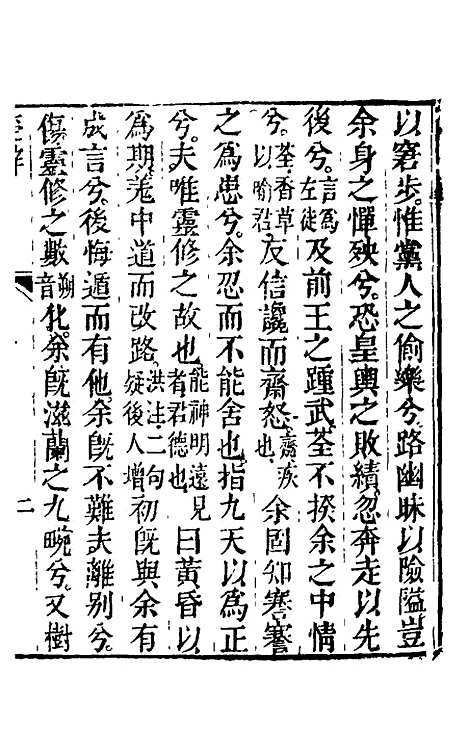 以窘步。惟黨人之偷樂兮。路幽昧以險隘。豈
余身之憚殃兮。恐皇輿之敗績。忽奔走以先
後兮。言為左徒及前王之踵武。荃不揆余之中情
兮。荃香草以喻君。反信讒而齋怒。齋疾也。余固知謇謇
之為患兮。余忍而不能舍也。指九天以為正
兮。夫唯靈修之故也。能神明遠見者君德也曰黃昏以
為期。羌中道而改路。洪注二句疑後人增初既與余有
成言兮。後悔遁而有他。余既不難夫離別兮。
傷靈修之數音朔化。余既滋蘭之九畹兮。又樹
二